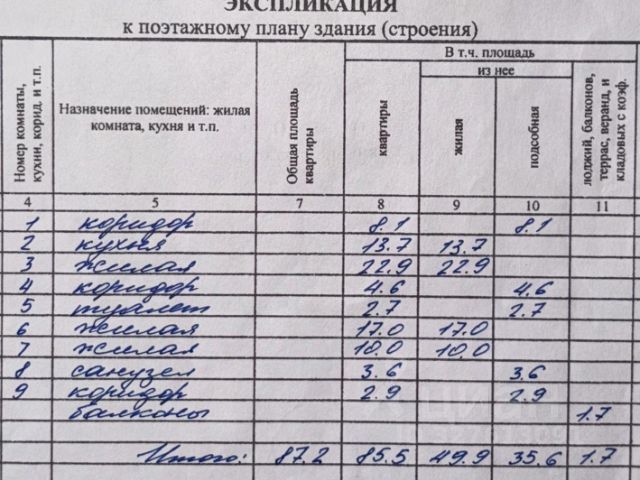 ЭКСПЛИКАЦИЯ
к поэтажному плану здания (строения)
Номер комнаты, кухни, корид. и т.п.
Назначение помещений: жилая комната, кухня и т.п.
Общая площадь квартиры
В т.ч. площадь
квартиры
из нее
жилая
подсобная
лоджий, балконов, террас, веранд, и кладовых с коэф.
4 5 7 8 9 10 11
1 коридор 8.1 8.1
2 кухня 13.7 13.7
3 жилая 22.9 22.9
4 коридор 4.6 4.6
5 туалет 2.7 2.7
6 жилая 17.0 17.0
7 жилая 10.0 10.0
8 санузел 3.6 3.6
9 коридор 2.9 2.9
балконы 1.7
Итого: 87.2 85.5 49.9 35.6 1.7